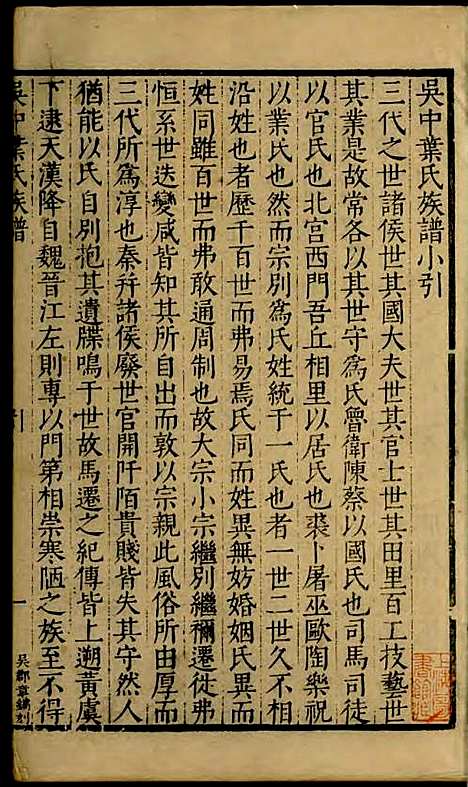 吳中葉氏族譜小引
三代之世諸侯世其國大夫世其官士世其田里百工技藝世
其業是故常各以其世守為氏魯衛陳蔡以國氏也司馬司徒
以官氏也北宮西門吾丘相里以居氏也裘卜屠巫歐陶樂祝
以業氏也然而宗別為氏姓統于一氏也者一世二世久不相
沿姓也者歷千百世而弗易焉氏同而姓異無妨婚姻氏異而
姓同雖百世而弗敢通周制也故大宗小宗繼別繼禰遷徙弗
恒系世迭變咸皆知其所自出而敦以宗親此風俗所由厚而
三代所為淳也秦并諸侯廢世官開阡陌貴賤皆失其守然人
猶能以氏自別抱其遺牒鳴于世故馬遷之紀傳皆上溯黃虞
下逮天漢降自魏晉江左則專以門第相崇寒陋之族至不得
吳中葉氏族譜
引
一
吳郡章鏞刻